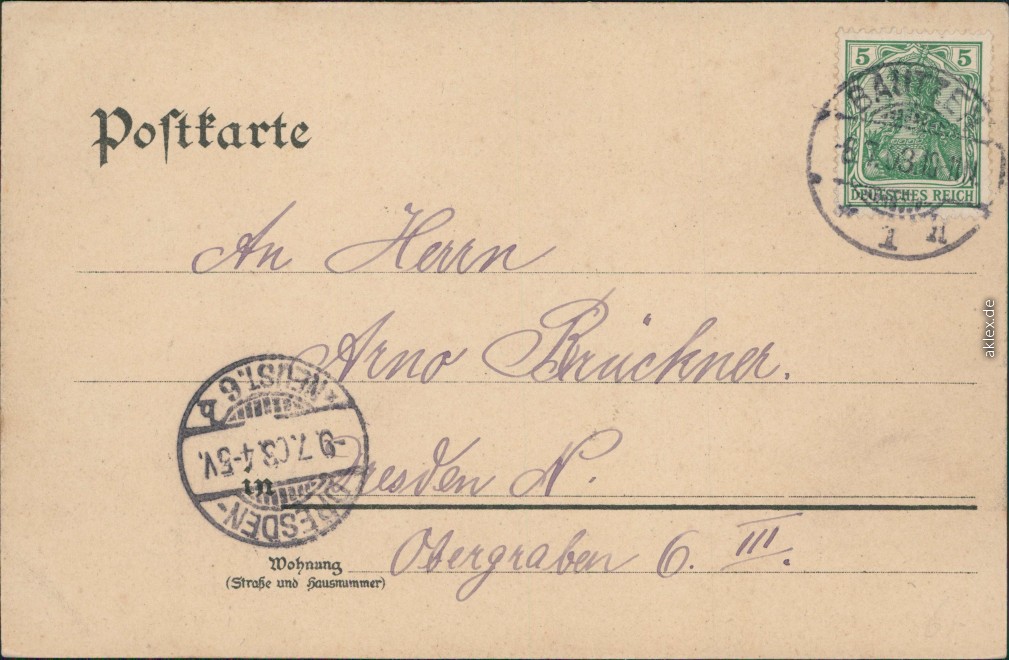 Postkarte
5 5
DEUTSCHES REICH
BAUTZEN
1 n
An Herrn
Arno Brückner.
in Dresden N.
Wohnung
(Straße und Hausnummer)
Obergraben 6. III.
DRESDEN-
9.7.03.4-5V.
*NEUST.6 b
aklex.de